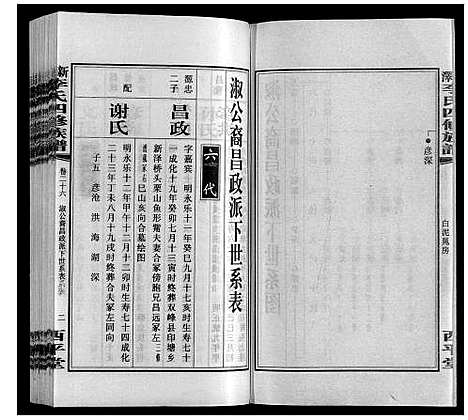 新李氏四修族谱
彦深
白泥凤房
西平堂
淑公裔昌政派下世系表
六代
源忠
二子
昌政
字嘉宾 明永乐十一年癸巳九月十七亥时生寿七十
一 成化十九年癸卯七月十三寅时终葬双峰县印塘乡
新泽桥头栗山鱼形鬻夫妻合冢傍胞兄昌远冢左三修
已山亥向合墓绘图
配
谢氏
明永乐十二年甲午十二月十二卯时生寿七十四成化
二十三年丁未八月十九戌时终葬合夫冢左同向
子五 彦沧 洪 海 湖 深
新李氏四修族谱
卷二十六
淑公裔昌政派下世系表
二
西平堂